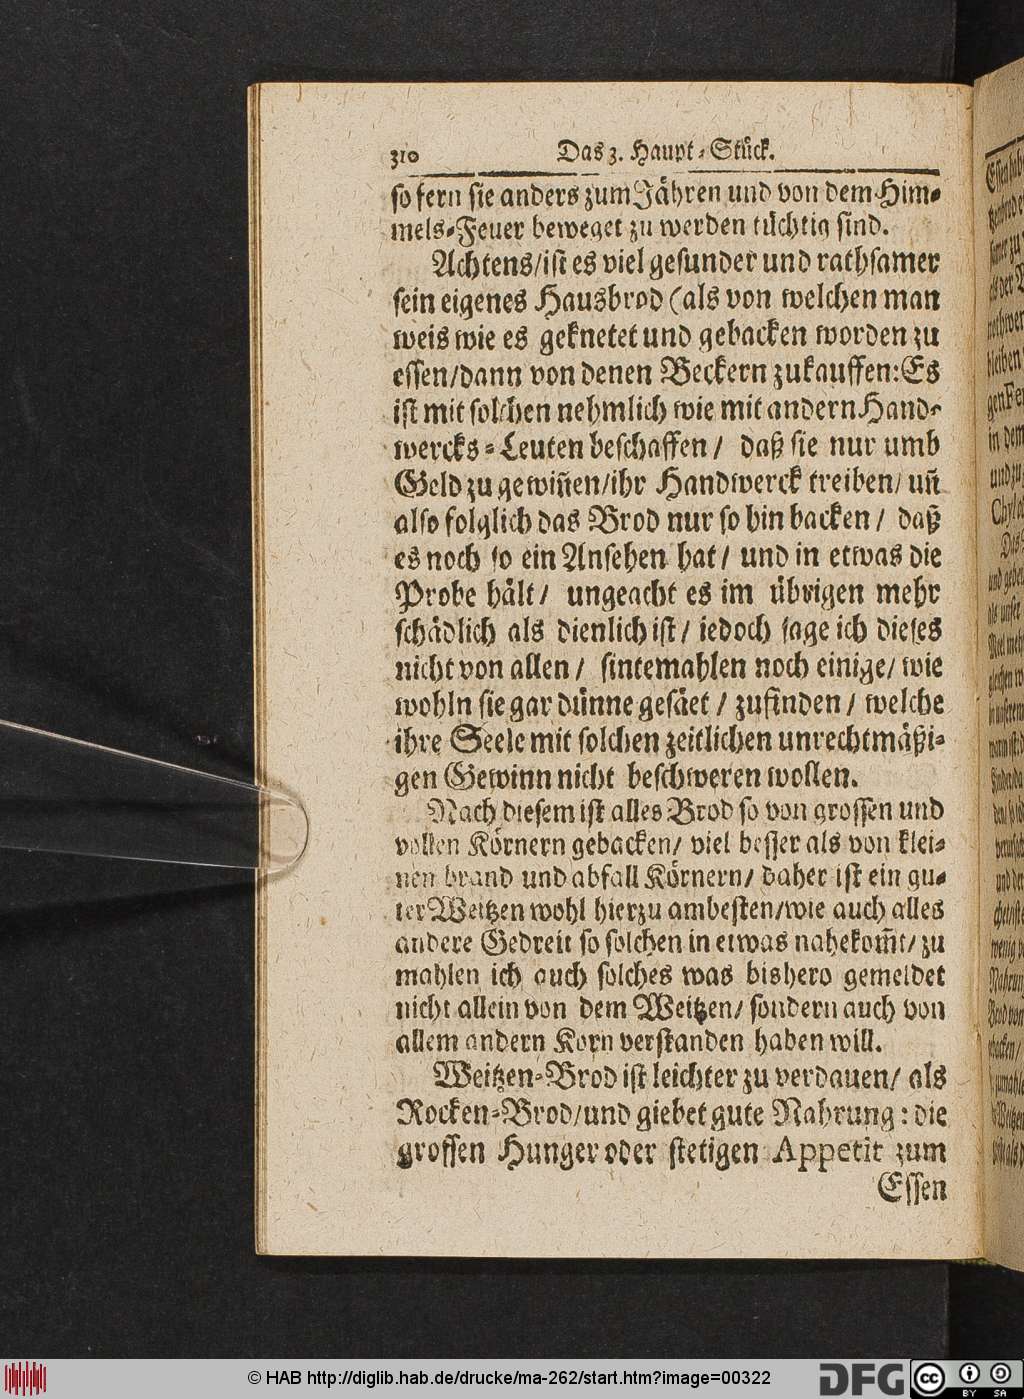 310 Das 3. Haupt-Stück.
so fern sie anders zum Jähren und von dem Him-
mels-Feuer beweget zu werden tüchtig sind.
Achtens/ist es viel gesunder und rathsamer
sein eigenes Hausbrod (als von welchen man
weis wie es geknetet und gebacken worden zu
essen/dann von denen Beckern zukauffen: Es
ist mit solchen nehmlich wie mit andern Hand-
wercks-Leuten beschaffen / daß sie nur umb
Geld zu gewiñen/ihr Handwerck treiben/ uñ
also folglich das Brod nur so hin backen / daß
es noch so ein Ansehen hat / und in etwas die
Probe hält / ungeacht es im übrigen mehr
schädlich als dienlich ist / iedoch sage ich dieses
nicht von allen / sintemahlen noch einige / wie
wohln sie gar dünne gesäet / zufinden / welche
ihre Seele mit solchen zeitlichen unrechtmäßi-
gen Gewinn nicht beschweren wollen.
Nach diesem ist alles Brod so von grossen und
vollen Körnern gebacken/ viel besser als von klei-
nen brand und abfall Körnern/ daher ist ein gu-
ter Weitzen wohl hierzu ambesten/wie auch alles
andere Gedreit so solchen in etwas nahekom̃t/ zu
mahlen ich auch solches was bishero gemeldet
nicht allein von dem Weitzen/ sondern auch von
allem andern Korn verstanden haben will.
Weitzen-Brod ist leichter zu verdauen/ als
Rocken-Brod/und giebet gute Nahrung: die
grossen Hunger oder stetigen Appetit zum
Essen
© HAB http://diglib.hab.de/drucke/ma-262/start.htm?image=00322
DFG
cc BY SA